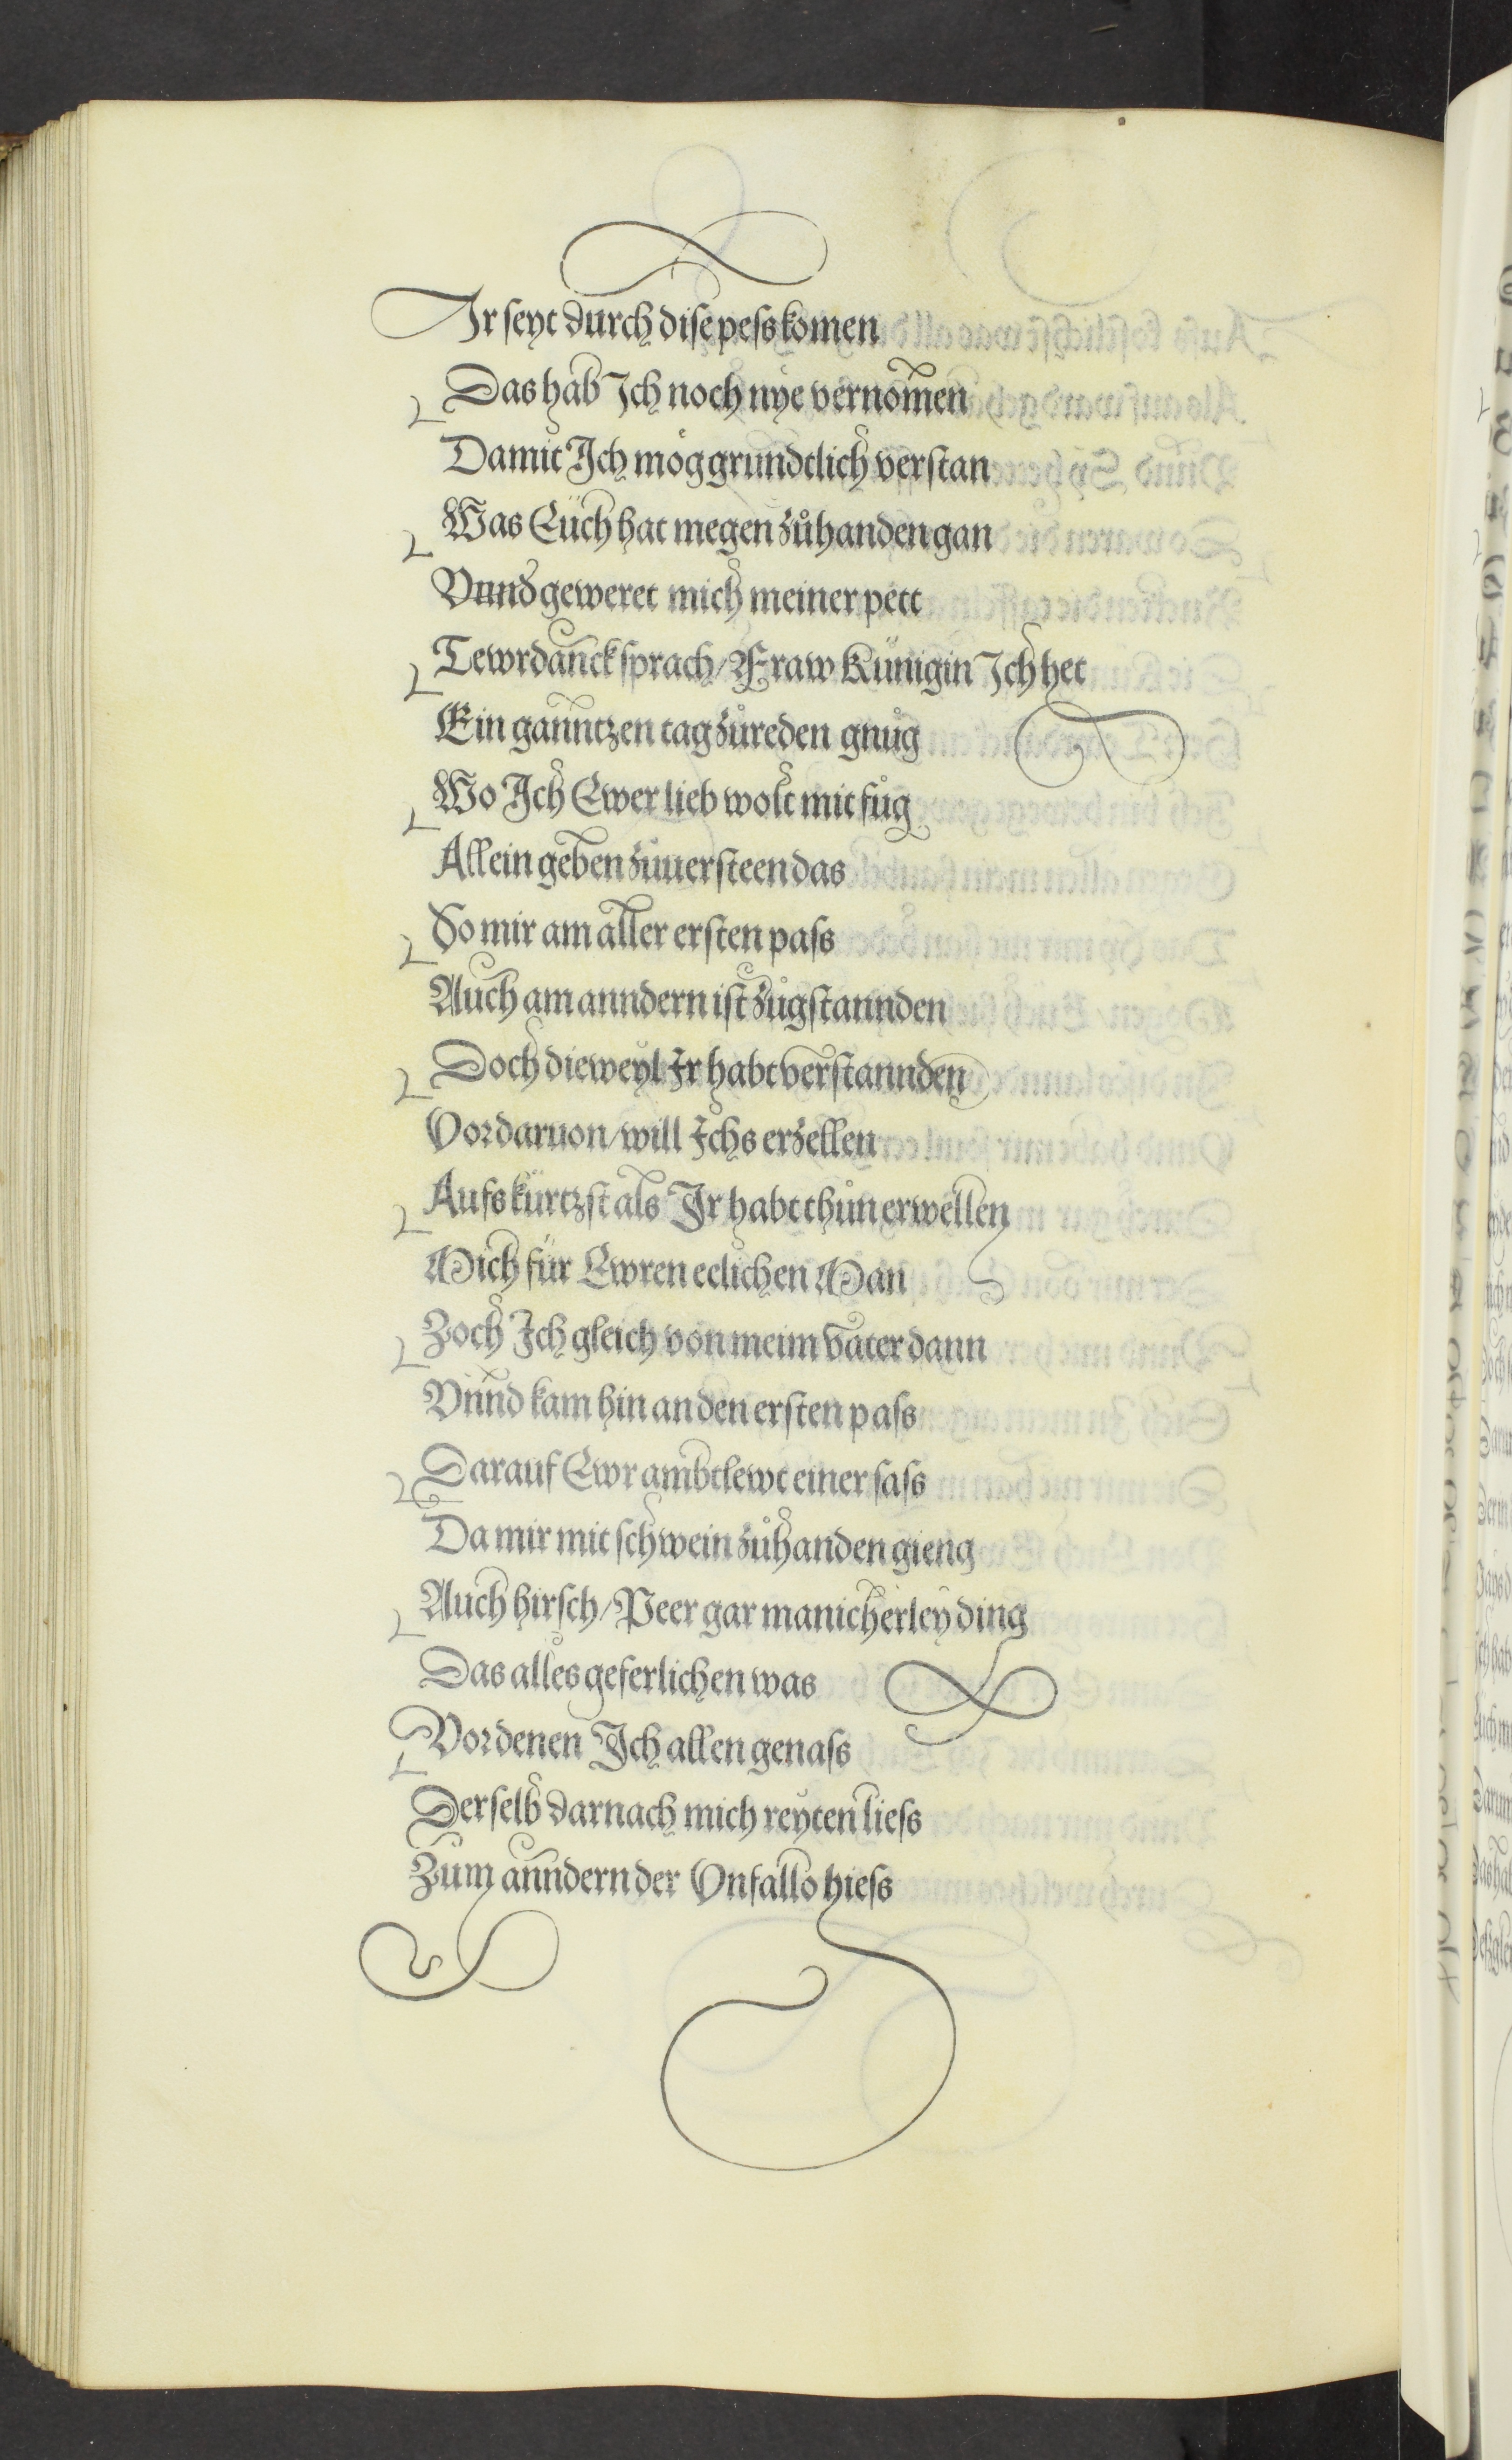 Ir seyt durch dise pess komen
Das hab Ich noch nye vernomen
Damit Ich mög grundtlich verstan
Was Eüch hat megen zůhanden gan
Vnnd geweret mich meiner pett
Tewrdanck sprach / Fraw Künigin Ich het
Ein ganntzen tag zůreden gnůg
Wo Ich Ewer lieb wolt mit fůg
Allein geben zůuersteen das
So mir am aller ersten pass
Auch am anndern ist zůgstannden
Doch dieweyl Ir habt verstannden
Vor daruon / will Ichs erzellen
Aufs kürtzst als Ir habt thůn erwellen
Mich für Ewren eelichen Man
Zoch Ich gleich von meim vater dann
Vnnd kam hin an den ersten pass
Darauf Ewr ambtlewt einer sass
Da mir mit schwein zůhanden gieng
Auch hirsch / Peer gar manicherley ding
Das alles geferlichen was
Vor denen Ich allen genass
Derselb darnach mich reyten liess
Zum anndern der Vnfallo hiess